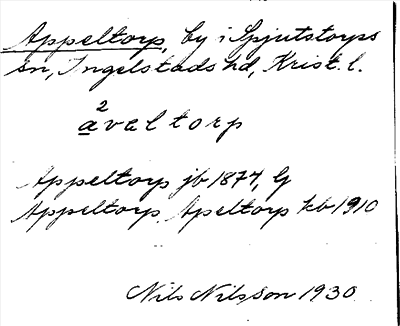 Appeltorp, by i Spjutstorps
sn, Ingelstads hd, Krist. l.
a²veltorp
Appeltorp jb 1877, G
Appeltorp, Apeltorp kb 1910
Nils Nilsson 1930